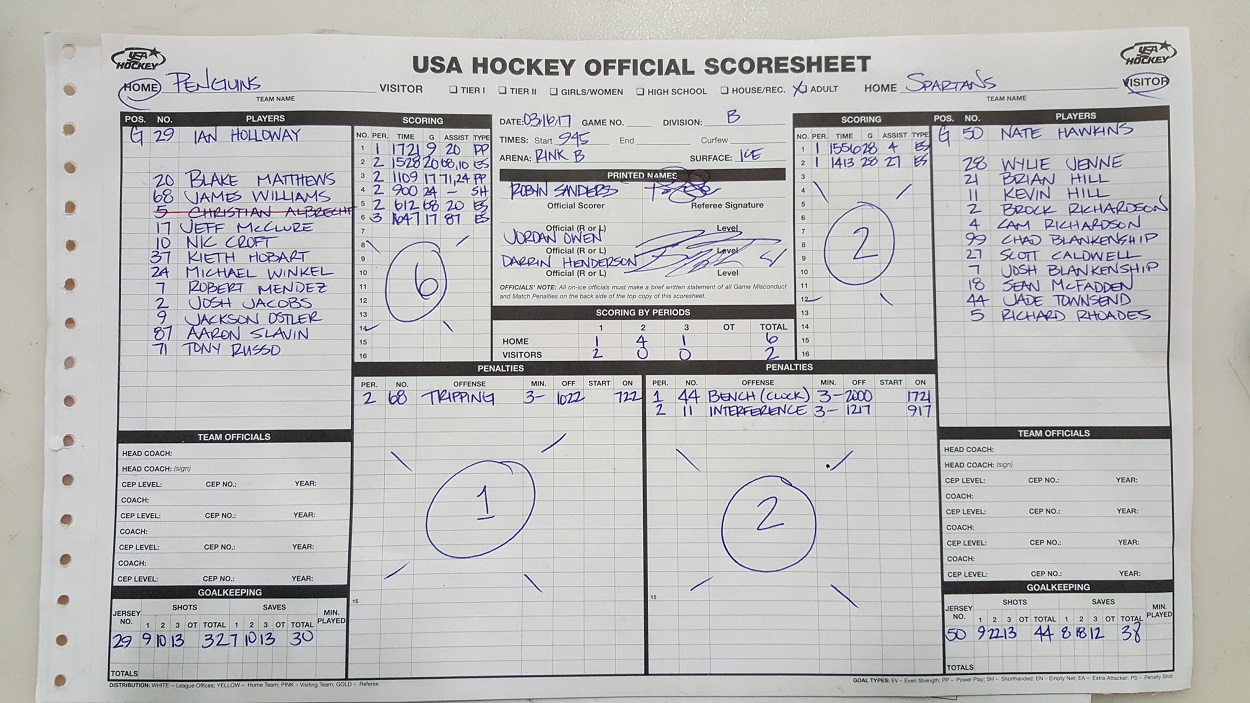 USA HOCKEY
USA HOCKEY OFFICIAL SCORESHEET
USA HOCKEY
HOME PENGUINS VISITOR TIER I TIER II GIRLS/WOMEN HIGH SCHOOL HOUSE/REC. X ADULT HOME SPARTANS VISITOR
TEAM NAME
TEAM NAME
POS. NO. PLAYERS
G 29 IAN HOLLOWAY
20 BLAKE MATTHEWS
68 JAMES WILLIAMS
5 CHRISTIAN ALBRECHT
17 JEFF McCLURE
10 NIC CROFT
37 KIETH HOBART
24 MICHAEL WINKEL
7 ROBERT MENDEZ
2 JOSH JACOBS
9 JACKSON OSTLER
87 AARON SLAVIN
71 TONY RUSSO
SCORING
NO. PER. TIME G ASSIST TYPE
1 1 1721 9 20 PP
2 2 1528 20 68,10 ES
3 2 1109 17 71,24 PP
4 2 900 24 — SH
5 2 612 68 20 ES
6 3 1647 17 87 ES
7
8
9
10
11
12
13
14
15
16
6
DATE: 03/16/17 GAME NO. DIVISION: B
TIMES: Start 945 End Curfew
ARENA: RINK B SURFACE: ICE
PRINTED NAMES
ROBYN SANDERS
Official Scorer Referee Signature
Official (R or L) Level
JORDAN OWEN
Official (R or L) Level
DARRIN HENDERSON
Official (R or L) Level
OFFICIALS' NOTE: All on-ice officials must make a brief written statement of all Game Misconduct
and Match Penalties on the back side of the top copy of this scoresheet.
SCORING BY PERIODS
1 2 3 OT TOTAL
HOME 1 4 1 6
VISITORS 2 0 0 2
SCORING
NO. PER. TIME G ASSIST TYPE
1 1 1556 28 4 ES
2 1 1413 28 27 ES
3
4
5
6
7
8
9
10
11
12
13
14
15
16
2
POS. NO. PLAYERS
G 50 NATE HAWKINS
28 WYLIE JENNE
21 BRIAN HILL
11 KEVIN HILL
2 BROCK RICHARDSON
4 CAM RICHARDSON
99 CHAD BLANKENSHIP
27 SCOTT CALDWELL
7 JOSH BLANKENSHIP
18 SEAN McFADDEN
44 JADE TOWNSEND
5 RICHARD RHOADES
PENALTIES
PER. NO. OFFENSE MIN. OFF START ON
2 68 TRIPPING 3- 1022 722
1
15
PENALTIES
PER. NO. OFFENSE MIN. OFF START ON
1 44 BENCH (CLOCK) 3- 2000 1721
2 11 INTERFERENCE 3- 1217 917
2
15
TEAM OFFICIALS
HEAD COACH:
HEAD COACH: (sign)
CEP LEVEL: CEP NO.: YEAR:
COACH:
CEP LEVEL: CEP NO.: YEAR:
COACH:
CEP LEVEL: CEP NO.: YEAR:
COACH:
CEP LEVEL: CEP NO.: YEAR:
GOALKEEPING
JERSEY NO. SHOTS SAVES MIN. PLAYED
1 2 3 OT TOTAL 1 2 3 OT TOTAL
29 9 10 13 32 7 10 13 30
TOTALS
TEAM OFFICIALS
HEAD COACH:
HEAD COACH: (sign)
CEP LEVEL: CEP NO.: YEAR:
COACH:
CEP LEVEL: CEP NO.: YEAR:
COACH:
CEP LEVEL: CEP NO.: YEAR:
COACH:
CEP LEVEL: CEP NO.: YEAR:
GOALKEEPING
JERSEY NO. SHOTS SAVES MIN. PLAYED
1 2 3 OT TOTAL 1 2 3 OT TOTAL
50 9 22 13 44 8 18 12 38
TOTALS
DISTRIBUTION: WHITE – League Offices; YELLOW – Home Team; PINK – Visiting Team; GOLD – Referee
GOAL TYPES: EV – Even Strength; PP – Power Play; SH – Shorthanded; EN – Empty Net; EA – Extra Attacker; PS – Penalty Shot